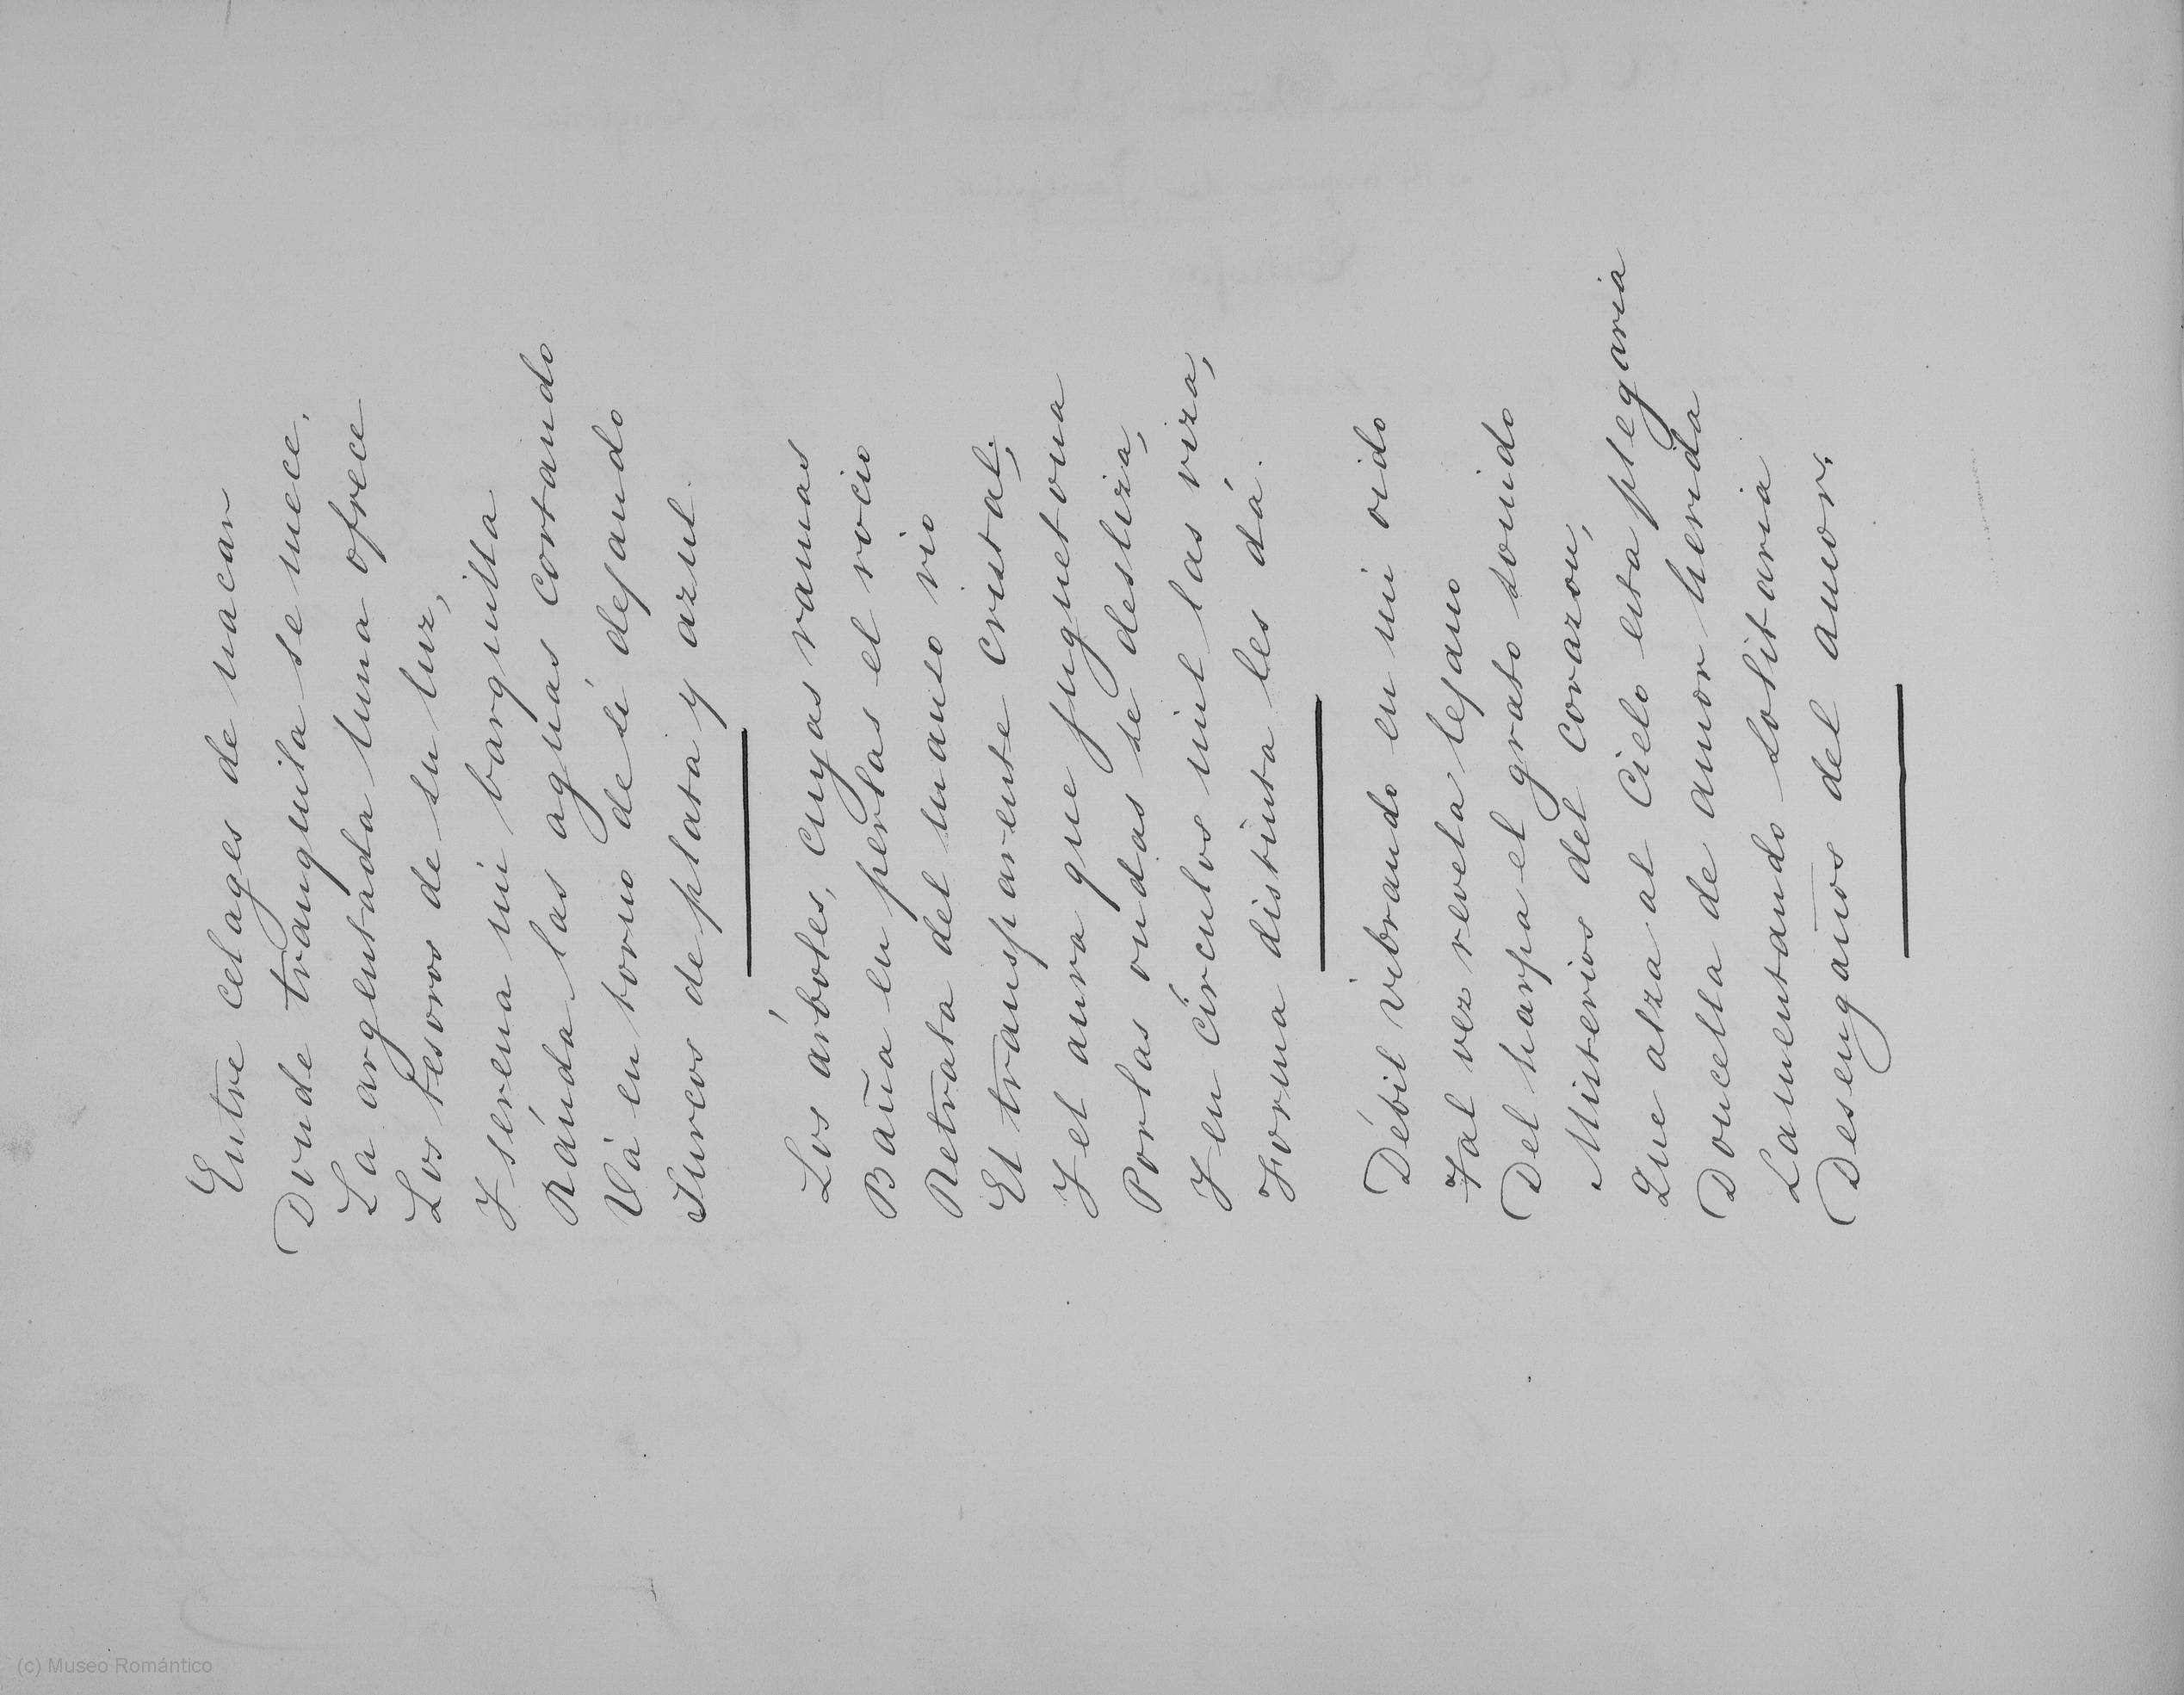 Entre celages de nacar
Donde tranquila se mece,
La argentada luna ofrece
Los tesoros de su luz,
Y serena mi barquilla
Ráuda las aguas cortando
Vá en torno de sí dejando
Surcos de plata y azul.
Los árboles, cuyas ramas
Baña en perlas el rocio
Retrata del manso rio
El transparente cristal;
Y el aura que juguetona
Por las ondas se desliza,
Y en círculos mil las riza,
Forma distinta les dá.
Débil vibrando en mi oido
Tal vez revela lejano
Del harpa el grato sonido
Misterios del corazon,
Que alza al Cielo esta plegaria
Doncella de amor herida
Lamentando solitaria
Desengaños del amor.
(c) Museo Romántico